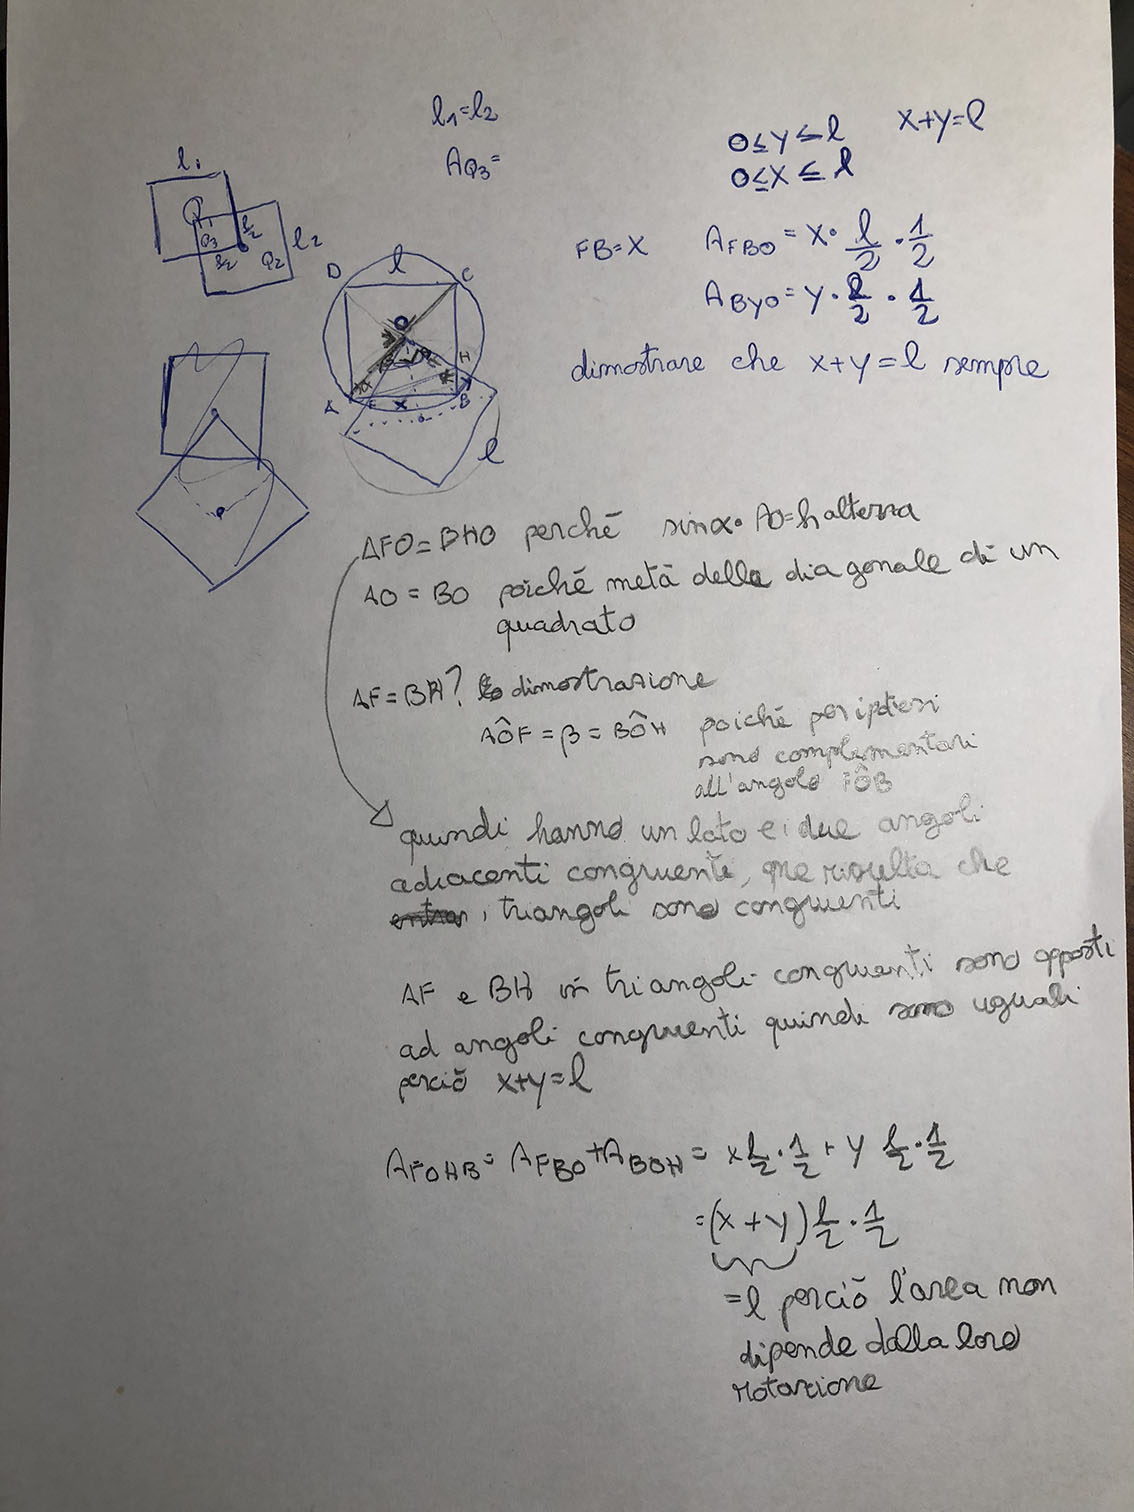 l₁=l₂
A_Q₃=
0≤y≤l x+y=l
0≤x≤l
l₁
Q₁
Q₃
l/2
l/2
Q₂
l₂
FB=x A_FBO = x· l/2 · 1/2
A_BYO = y· l/2 · 1/2
dimostrare che x+y=l sempre
D l C
O
H
A F x B
l
AFO=BHO perché sinα·AO=h altezza
AO = BO poiché metà della diagonale di un
quadrato
AF=BH? dimostrazione
AÔF = β = BÔH poiché per ipotesi
sono complementari
all'angolo FÔB
quindi hanno un lato e i due angoli
adiacenti congruenti, ne risulta che
i triangoli sono congruenti
AF e BH in triangoli congruenti sono opposti
ad angoli congruenti quindi sono uguali
perciò x+y=l
A_FOHB = A_FBO + A_BOH = x l/2 · 1/2 + y l/2 · 1/2
=(x+y) l/2 · 1/2
=l perciò l'area non
dipende dalla loro
rotazione